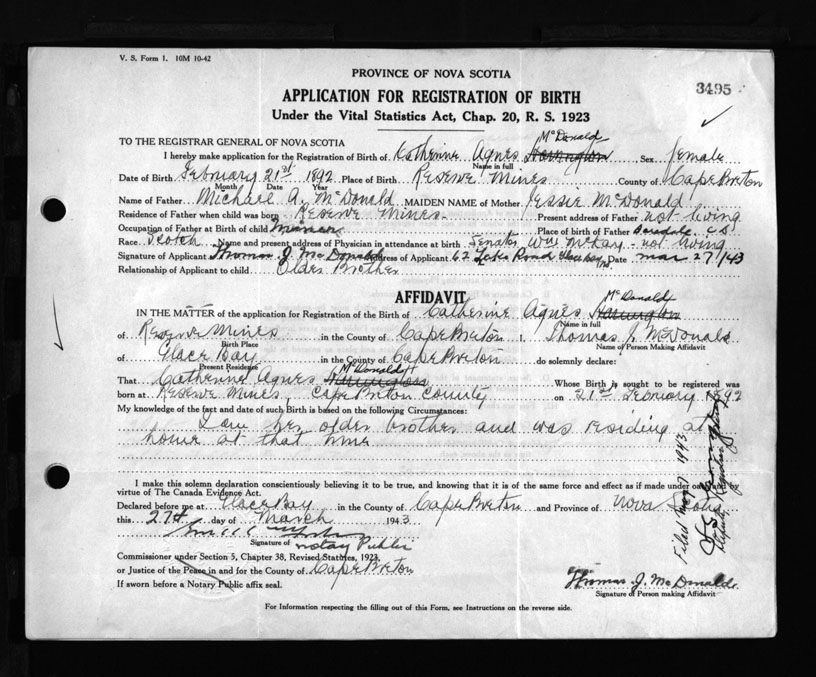 V. S. Form 1. 10M 10-42
PROVINCE OF NOVA SCOTIA
3495
APPLICATION FOR REGISTRATION OF BIRTH
Under the Vital Statistics Act, Chap. 20, R. S. 1923
TO THE REGISTRAR GENERAL OF NOVA SCOTIA
McDonald
I hereby make application for the Registration of Birth of Catherine Agnes Harrington Sex female
Name in full
Date of Birth February 21st 1892 Place of Birth Reserve Mines County of Cape Breton
Month Date Year
Name of Father Michael A. McDonald MAIDEN NAME of Mother Jessie McDonald
Residence of Father when child was born Reserve Mines Present address of Father not living
Occupation of Father at Birth of child Miner Place of Birth of Father C B
Race Scotch Name and present address of Physician in attendance at birth Senator Wm McKay - not living
Signature of Applicant Thomas J. McDonald Address of Applicant 62 Lake Road Date Mar 27/43
Relationship of Applicant to child Older Brother
AFFIDAVIT
McDonald
IN THE MATTER of the application for Registration of the Birth of Catherine Agnes Harrington
Name in full
of Reserve Mines in the County of Cape Breton I, Thomas J. McDonald
Birth Place Name of Person Making Affidavit
of Glace Bay in the County of Cape Breton do solemnly declare:
Present Residence
McDonald
That Catherine Agnes Harrington Whose Birth is sought to be registered was
born at Reserve Mines, Cape Breton County on 21st February 1892
My knowledge of the fact and date of such Birth is based on the following Circumstances:
I am her older brother and was residing at
home at that time
I make this solemn declaration conscientiously believing it to be true, and knowing that it is of the same force and effect as if made under oath and by
virtue of The Canada Evidence Act.
Declared before me at Glace Bay in the County of Cape Breton and Province of Nova Scotia
this 27th day of March 1943
Signature of Notary Public
Commissioner under Section 5, Chapter 38, Revised Statutes, 1923,
or Justice of the Peace in and for the County of Cape Breton
If sworn before a Notary Public affix seal.
Thomas J. McDonald
Signature of Person making Affidavit
For Information respecting the filling out of this Form, see Instructions on the reverse side.
Filed 1943
Deputy Registrar